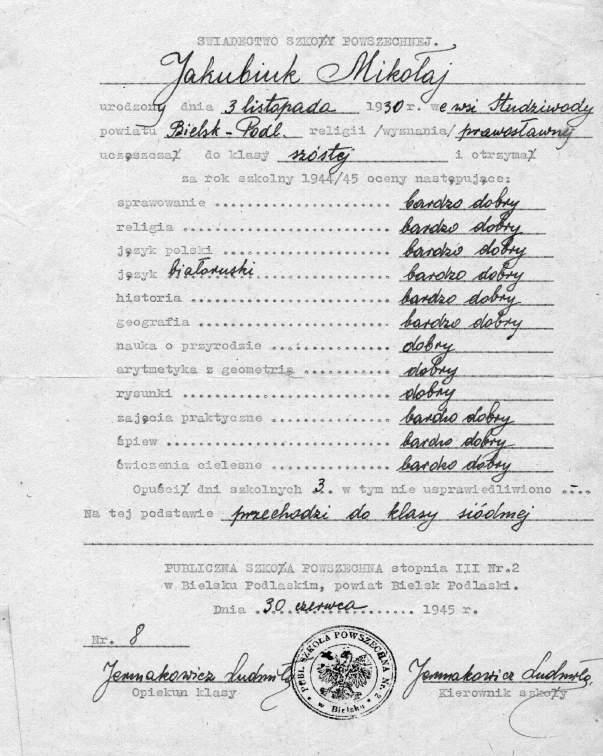 ŚWIADECTWO SZKOŁY POWSZECHNEJ.
Jakubiuk Mikołaj
urodzony dnia 3 listopada 1930 r. we wsi Studziwody
powiatu Bielsk-Podl. religii /wyznania/ prawosławnej
uczęszczał do klasy szóstej i otrzymał
za rok szkolny 1944/45 oceny następujące:
sprawowanie .................... bardzo dobry
religia .................... bardzo dobry
język polski .................... bardzo dobry
język białoruski .................... bardzo dobry
historia .................... bardzo dobry
geografia .................... bardzo dobry
nauka o przyrodzie .................... dobry
arytmetyka z geometrią .................... dobry
rysunki .................... dobry
zajęcia praktyczne .................... bardzo dobry
śpiew .................... bardzo dobry
ćwiczenia cielesne .................... bardzo dobry
Opuścił dni szkolnych 3. w tym nie usprawiedliwiono .-.
Na tej podstawie przechodzi do klasy siódmej
PUBLICZNA SZKOŁA POWSZECHNA stopnia III Nr.2
w Bielsku Podlaskim, powiat Bielsk Podlaski.
Dnia 30 czerwca 1945 r.
Nr. 8
PUBL. SZKOŁA POWSZECHNA Nr. 2
w Bielsku
Jermakowicz Ludmiła Jermakowicz Ludmiła.
Opiekun klasy Kierownik szkoły